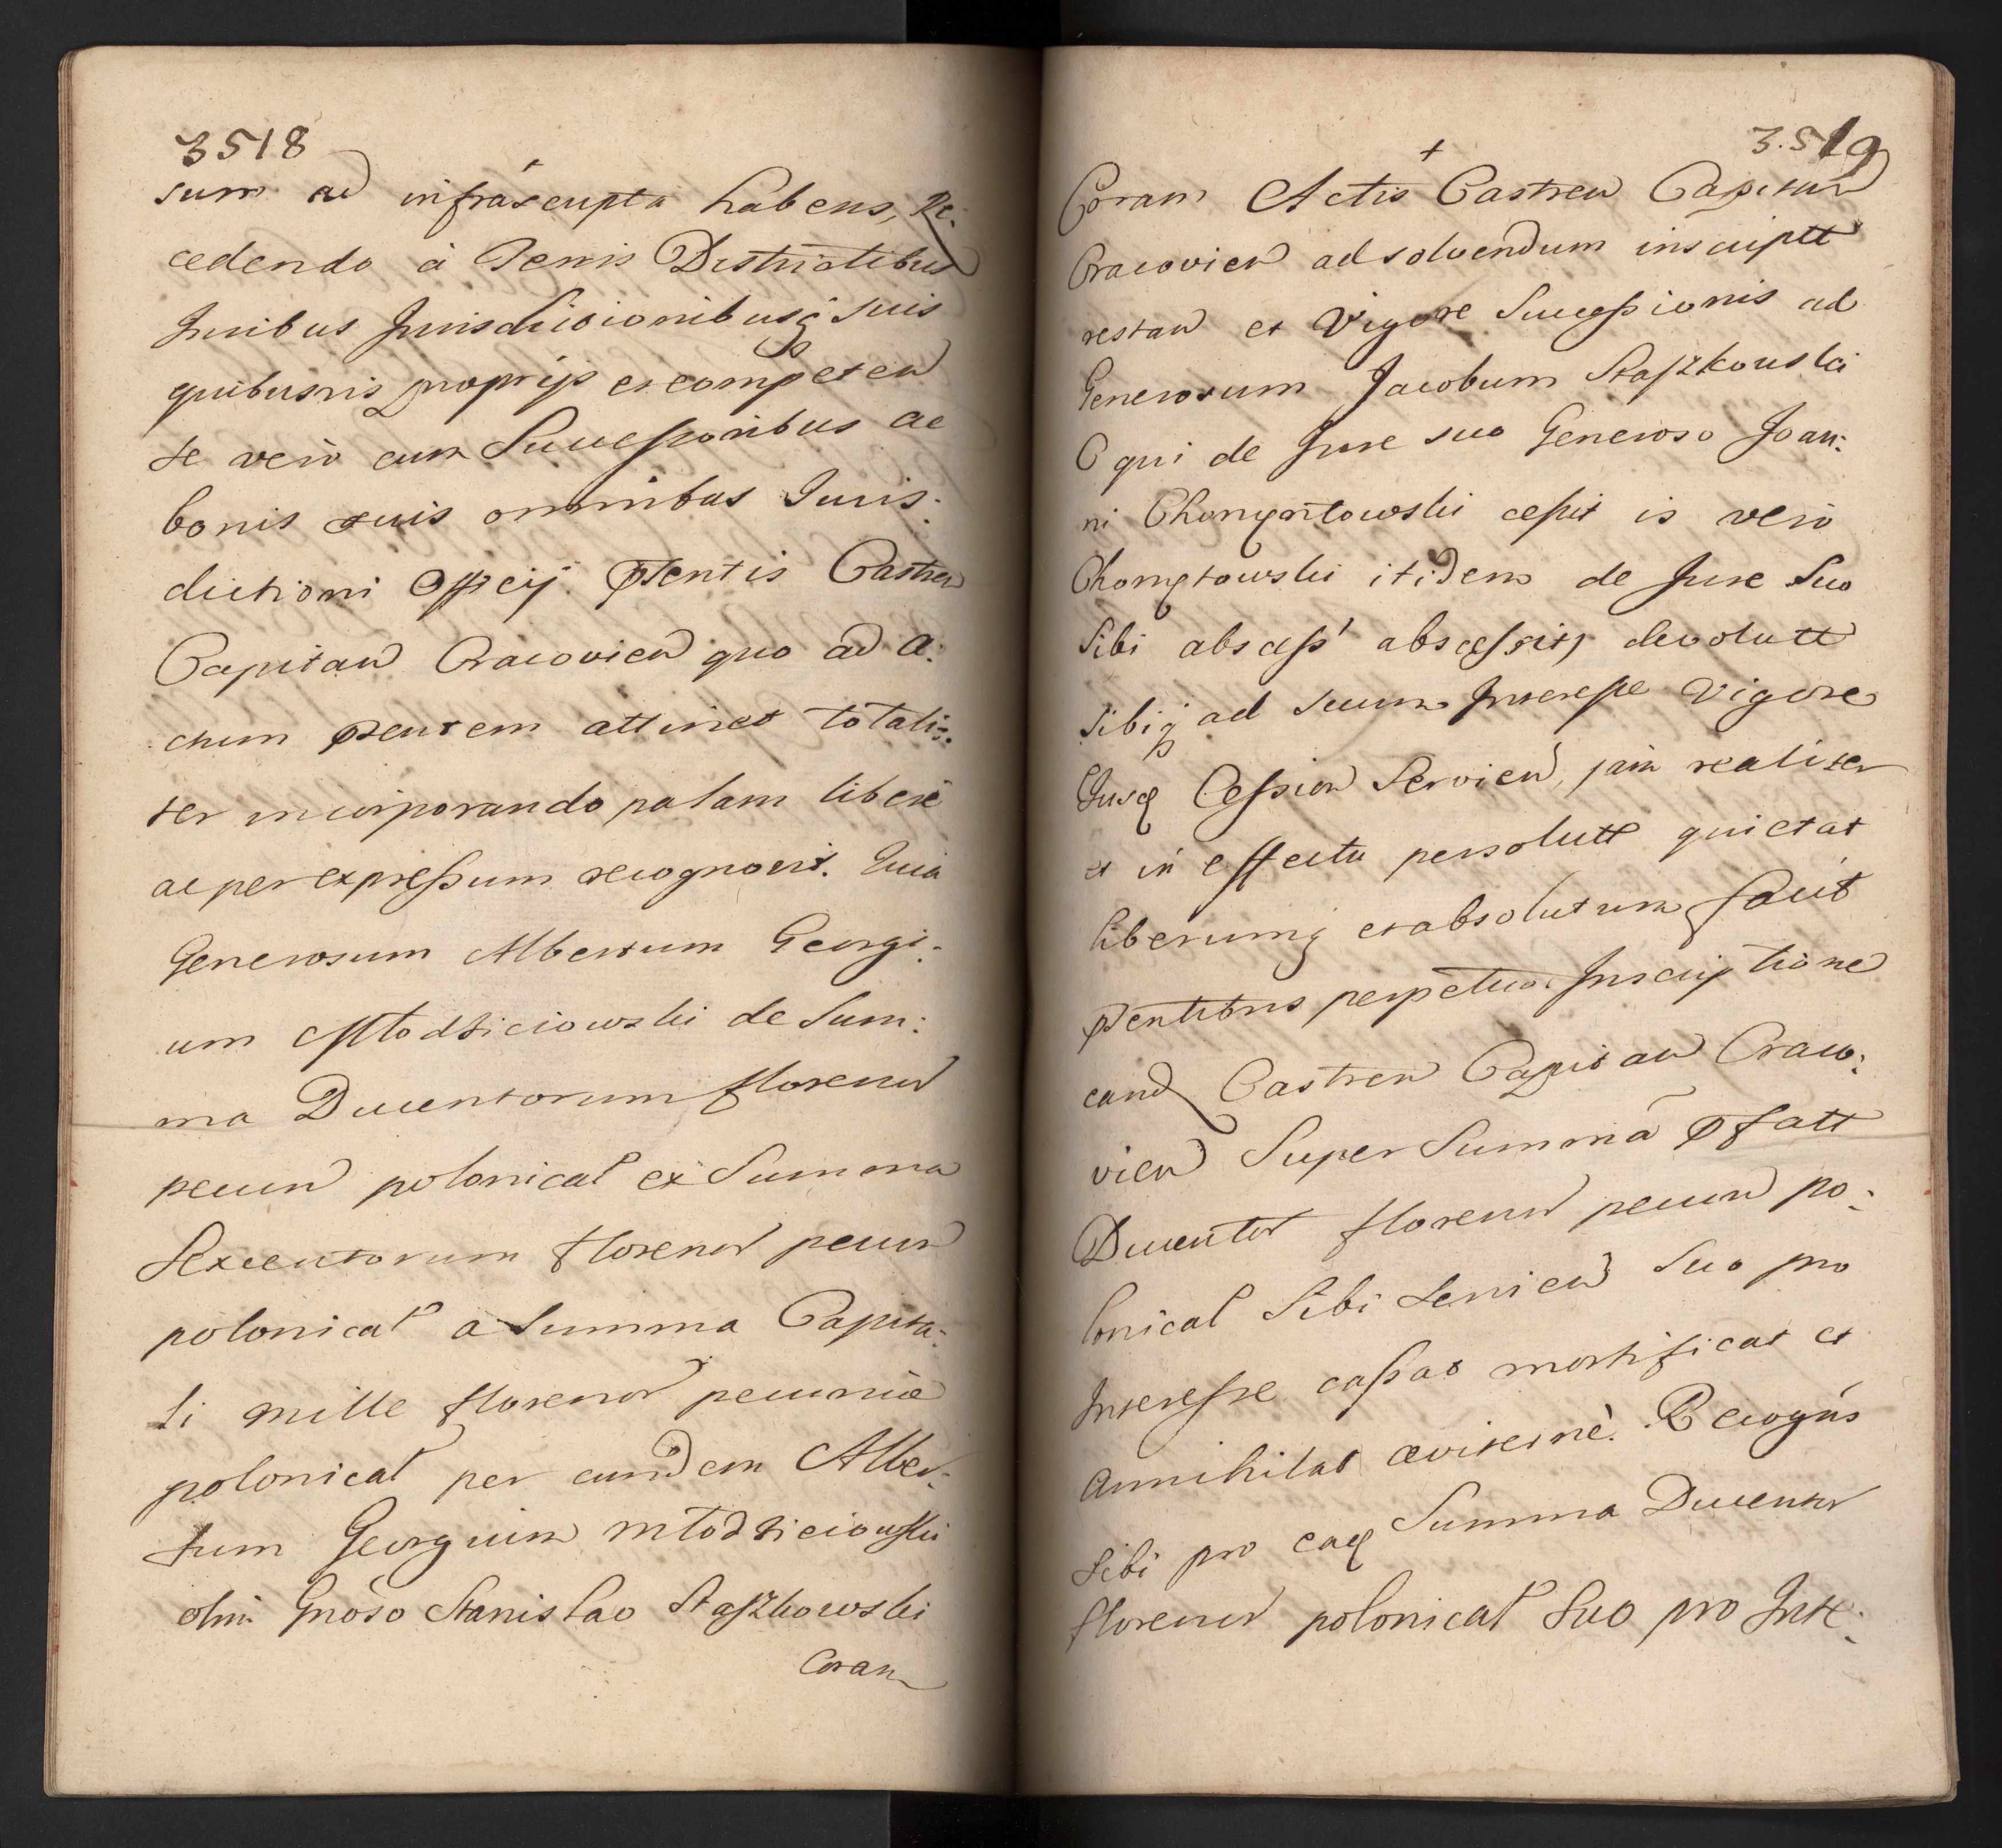 3518
sum ad infrascripta habens, Re:
cedendo à Terris Districtibus
Juribus Jurisdicionibusq suis
quibusvis proprijs et competen
se vero cum Successoribus ac
bonis suis omnibus Juris:
dictioni Officij Ptentis Castren
Capitan Cracovien quo ad a:
ctum Ptentem attinet totali:
ter incorporando palam liberè
ac per expressum recognovit. Quia
Generosum Albertum Georgi:
um Młodziciowski de Sum:
ma Ducentorum florenor
pecun polonical ex Summa
Sexcentorum florenor pecun
polonical a Summa Capita:
li mille florenor pecuniæ
polonical per eundem Alber:
tum Georgium Młodziciowski
olim Gnoso Stanislao Staszkowski
Coram
3.519
Coram Actis Castren Capitan
Cracovien ad solvendum inscriptt
restan et Vigore Successionis ad
Generosum Jacobum Staszkowski
qui de Jure suo Generoso Joan:
ni Chomętowski cessit is vero
Chomętowski itidem de Jure Suo
Sibi devolutt
Sibiq ad suum Interesse Vigore
Ejusd Cession Servien, jam realiter
et in effectu persolutt quietat
liberumq et absolutum facit
Ptentibus perpetuo. Inscriptione
eand Castren Capitan Craco:
vien Super Summa Pfatt
Ducentor florenor pecun po:
lonical Sibi Servien Suo pro
Interesse cassat mortificat et
annihilat æviternè. Recogns
Sibi pro ead Summa Ducentor
florenor polonical Suo pro Inte: